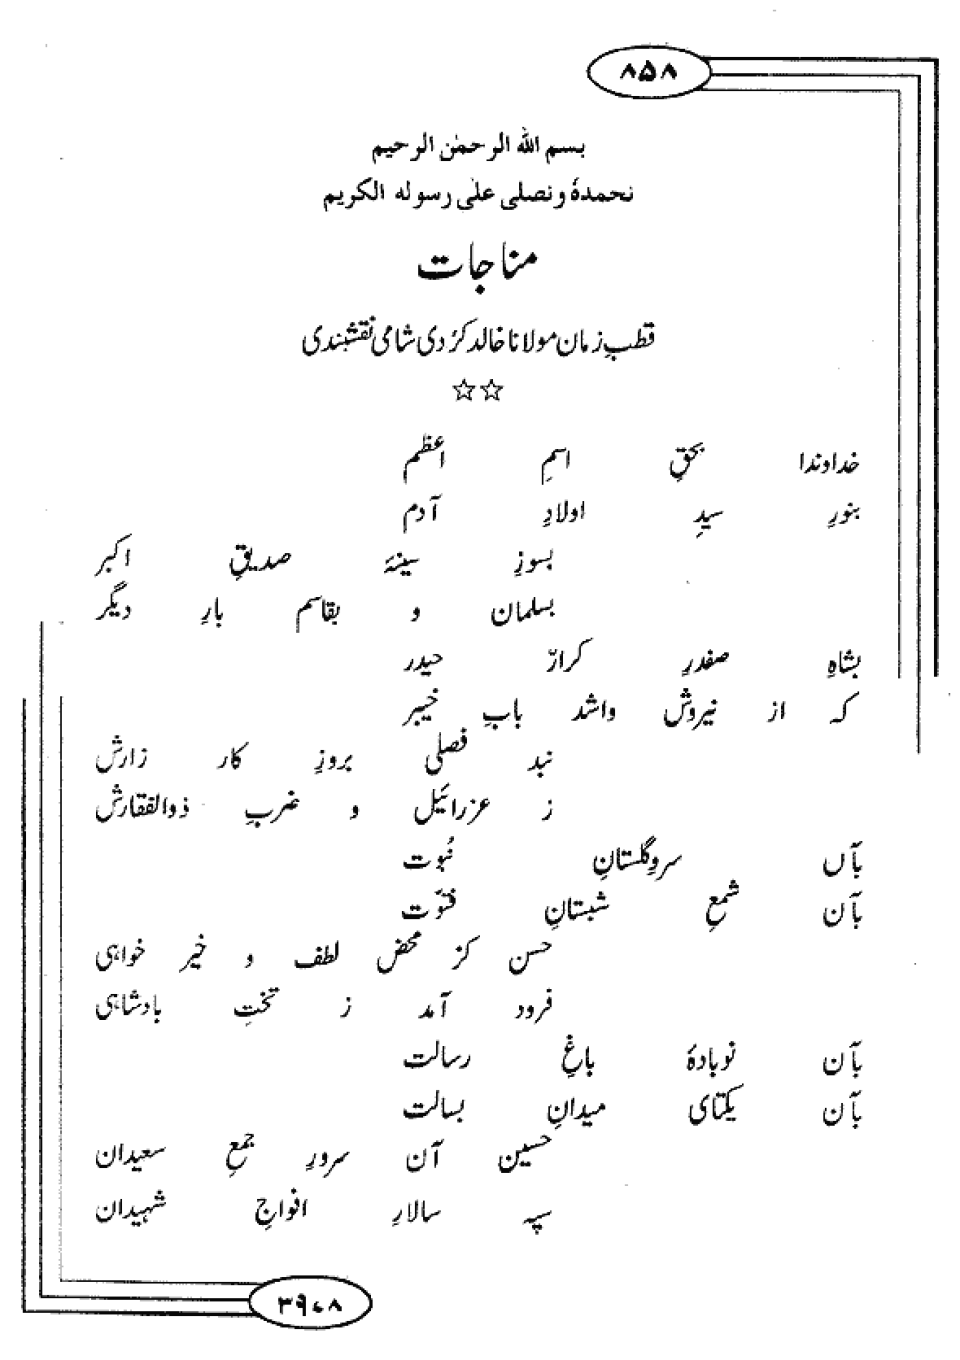 ۸۵۸
بسم الله الرحمٰن الرحیم
نحمدهٗ ونصلی علٰی رسوله الکریم
مناجات
قطبِ زمان مولانا خالد کُردی شامی نقشبندی
☆☆
خداوندا بحقِ اسمِ اعظم
بنورِ سیدِ اولادِ آدم
بسوزِ سینۂ صدیقِ اکبر
بسلمان و بقاسم بارِ دیگر
بشاہِ صفدرِ کرارّ حیدر
کہ از نیروش واشد بابِ خیبر
نبد فصلی بروزِ کار زارش
ز عزرائیل و ضربِ ذوالفقارش
بآں سروِ گلستانِ نُبوت
بآن شمعِ شبستانِ فتوّت
حسن کز محض لطف و خیر خواہی
فرود آمد ز تختِ بادشاہی
بآن نوبادۂ باغِ رسالت
بآن یکتای میدانِ بسالت
حسین آن سرورِ جمعِ سعیدان
سپہ سالارِ افواجِ شہیدان